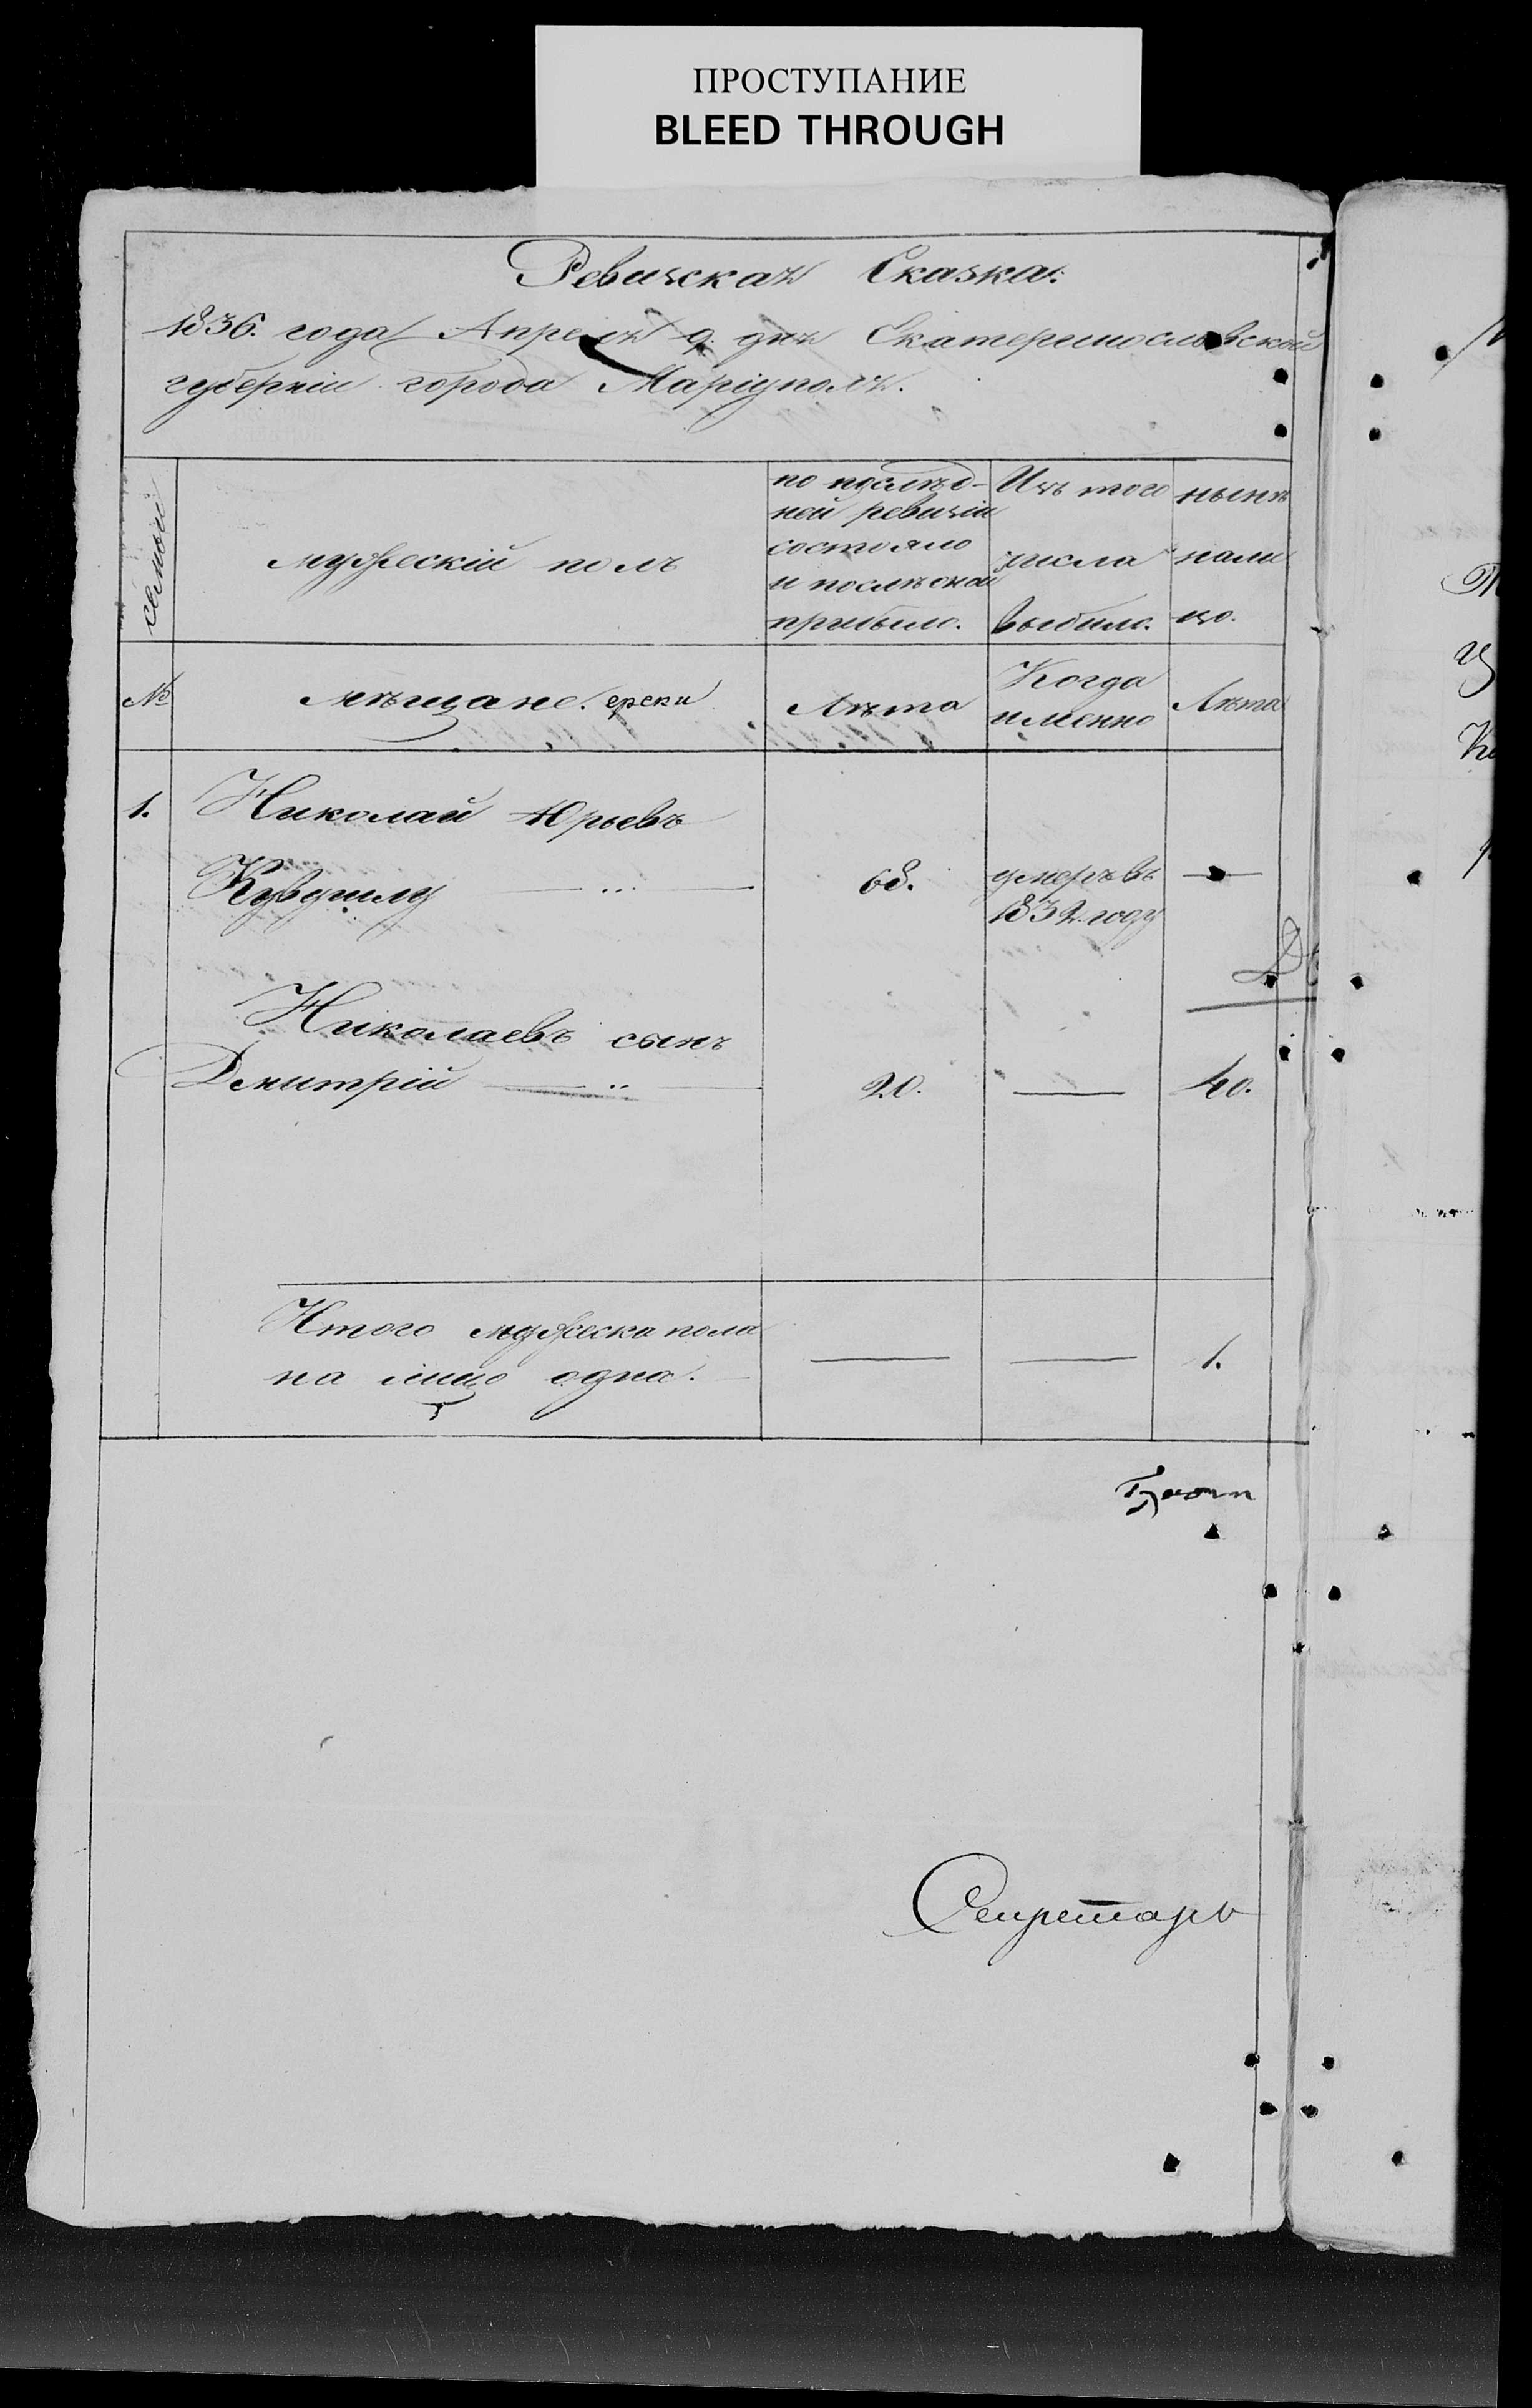 ПРОСТУПАНИЕ
BLEED THROUGH
Ревизская Сказка:
1836. года Апреля 9. дня Екатеринославской
губерніи города Маріуполя.
семьи
мужескій полъ
по послѣд-
ней ревизіи
состояло
и послѣ оной
прибыло.
Изъ того
числа
выбыло.
нынѣ
нали
цо.
№
мѣщане. греки
Лѣта
Когда
именно
Лѣта
1.
Николай Юрьевъ
68.
умеръ въ
1832. году
Николаевъ сынъ
Дмитрій
20.
40.
Итого мужеска пола
на лицо одна.
1.
Секретарь